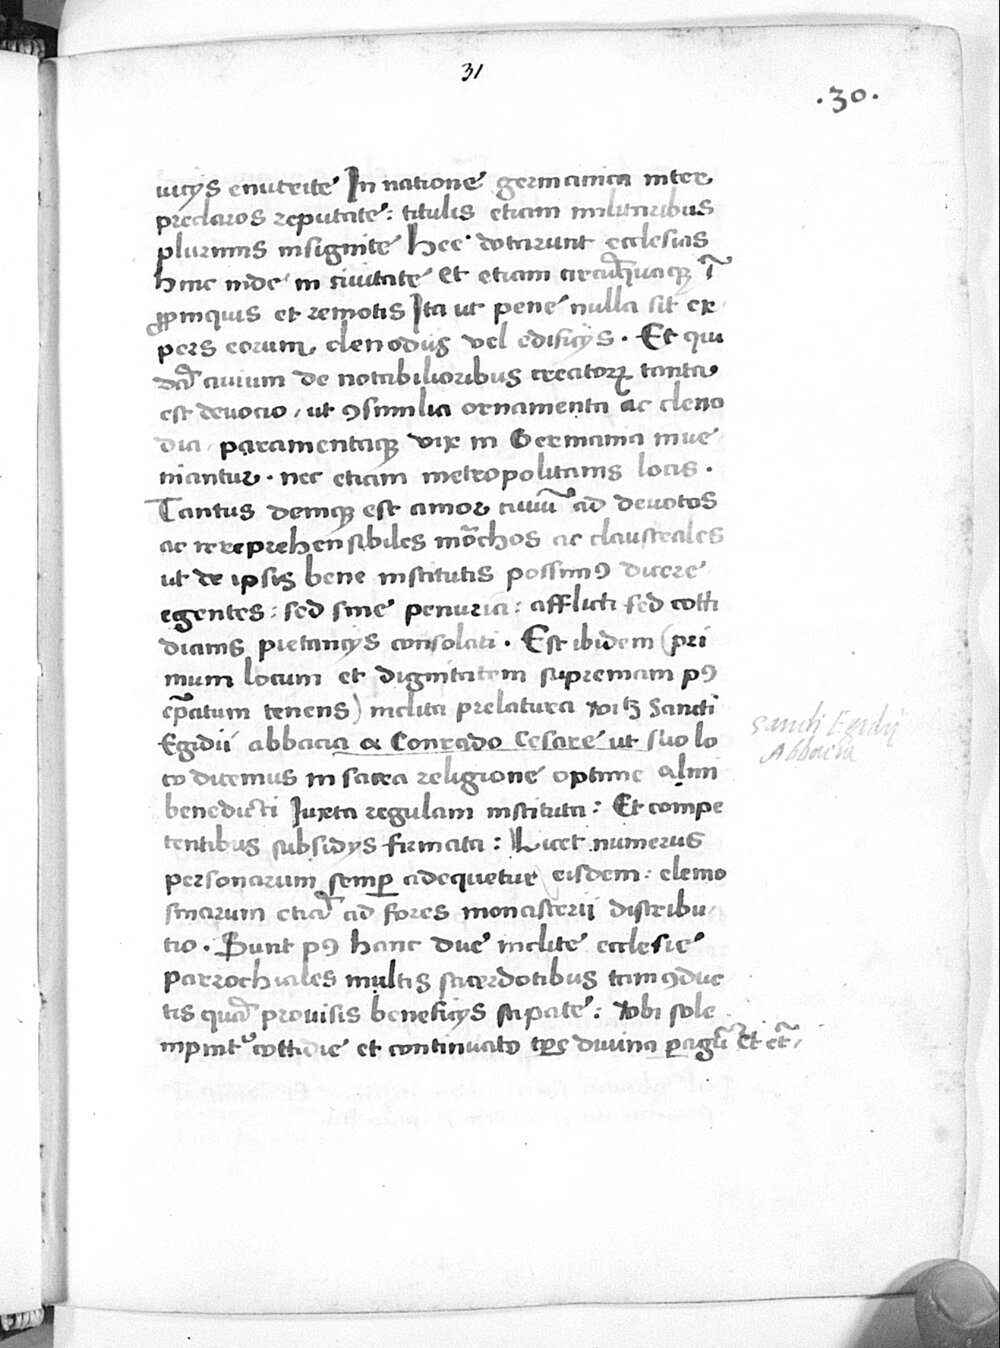 31
.30.
uicijs enutrite In natione germanica inter
preclaros reputate : titulis etiam militaribus
plurimis insignite Hee dotarunt ecclesias
hinc inde in ciuitate et etiam circumquaque
propinquis et remotis Ita ut pene nulla sit ex
pers eorum clenodijs vel edificijs . Et qui
ciuium de notabilioribus creatorum tanta
est deuocio , ut ꝯsimilia ornamenta ac cleno
dia paramentaque vix in Germania inue
niantur . nec etiam metropolitanis locis .
Tantus denique est amor ciuiū ad deuotos
ac irreprehensibiles mōchos ac claustrales
ut de ipsis bene institutis possimꝰ dicere
egentes : sed sine penuria : afflicti sed cotti
dianis pietancijs consolati . Est ibidem (pri
mum locum et dignitatem supremam pꝰ
tenens) inclita prelatura Sancti
Egidii abbacia a Conrado Cesare ut suo lo
co dicemus in sacra religione optime almi
benedicti Juxta regulam instituta : Et compe
tentibus subsidijs firmata : Licet numerus
personarum semper adequetur eisdem : elemo
sinarum eciā ad fores monasterii distribu
tio . Sunt pꝰ hanc due inclite ecclesie
parrochiales multis sacerdotibus tam ꝯduc
tis quā prouisis beneficijs stipate : vbi sole
et continuato tp̄e diuina
Sancti Egidij
Abbacia